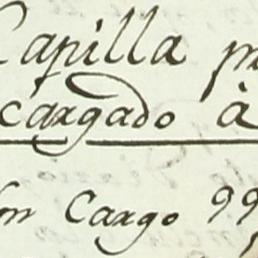 Capilla
cargado à
Cargo 99